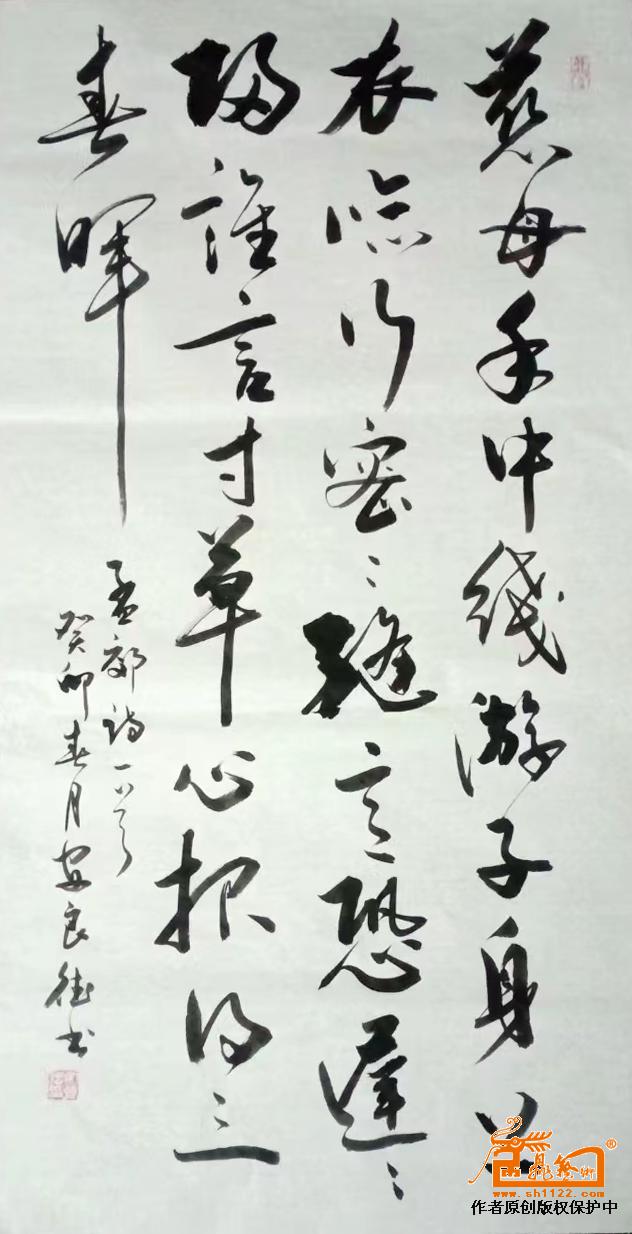 慈母手中线游子身上
衣临行密〻缝意恐遲〻
歸誰言寸草心报得三
春晖
孟郊诗一首
癸卯春月安良德书
www.sh1122.com
作者原创版权保护中